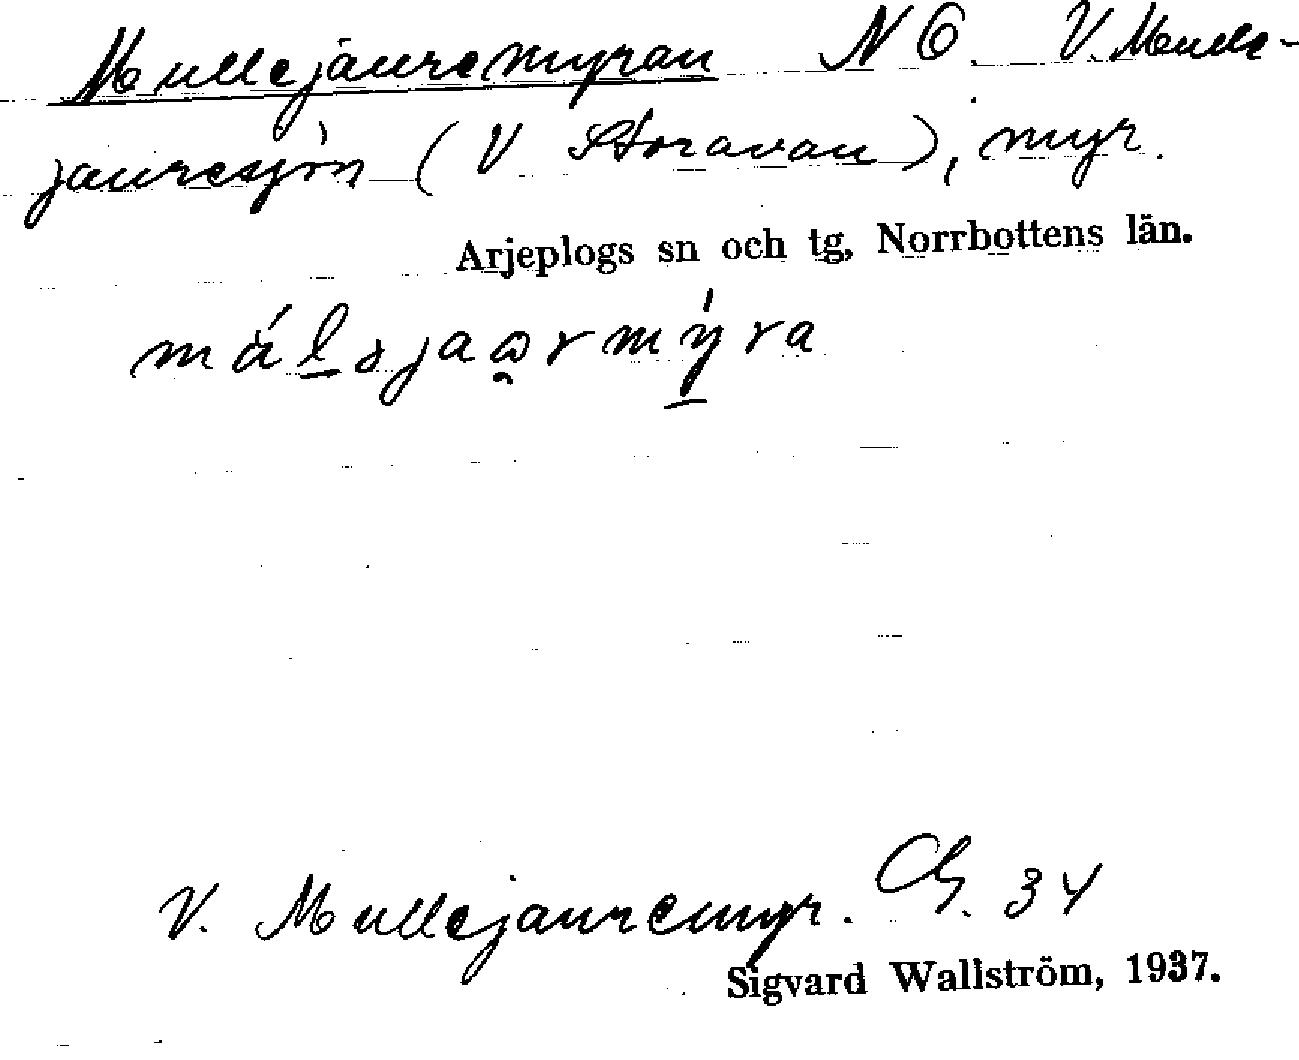 Mullejauremyran NO V. Mulle-
jauresjön (V Storavan), myr.
Arjeplogs sn och tg, Norrbottens län.
V. Mullejauremyr. Ch. 34
Sigvard Wallström, 1937.